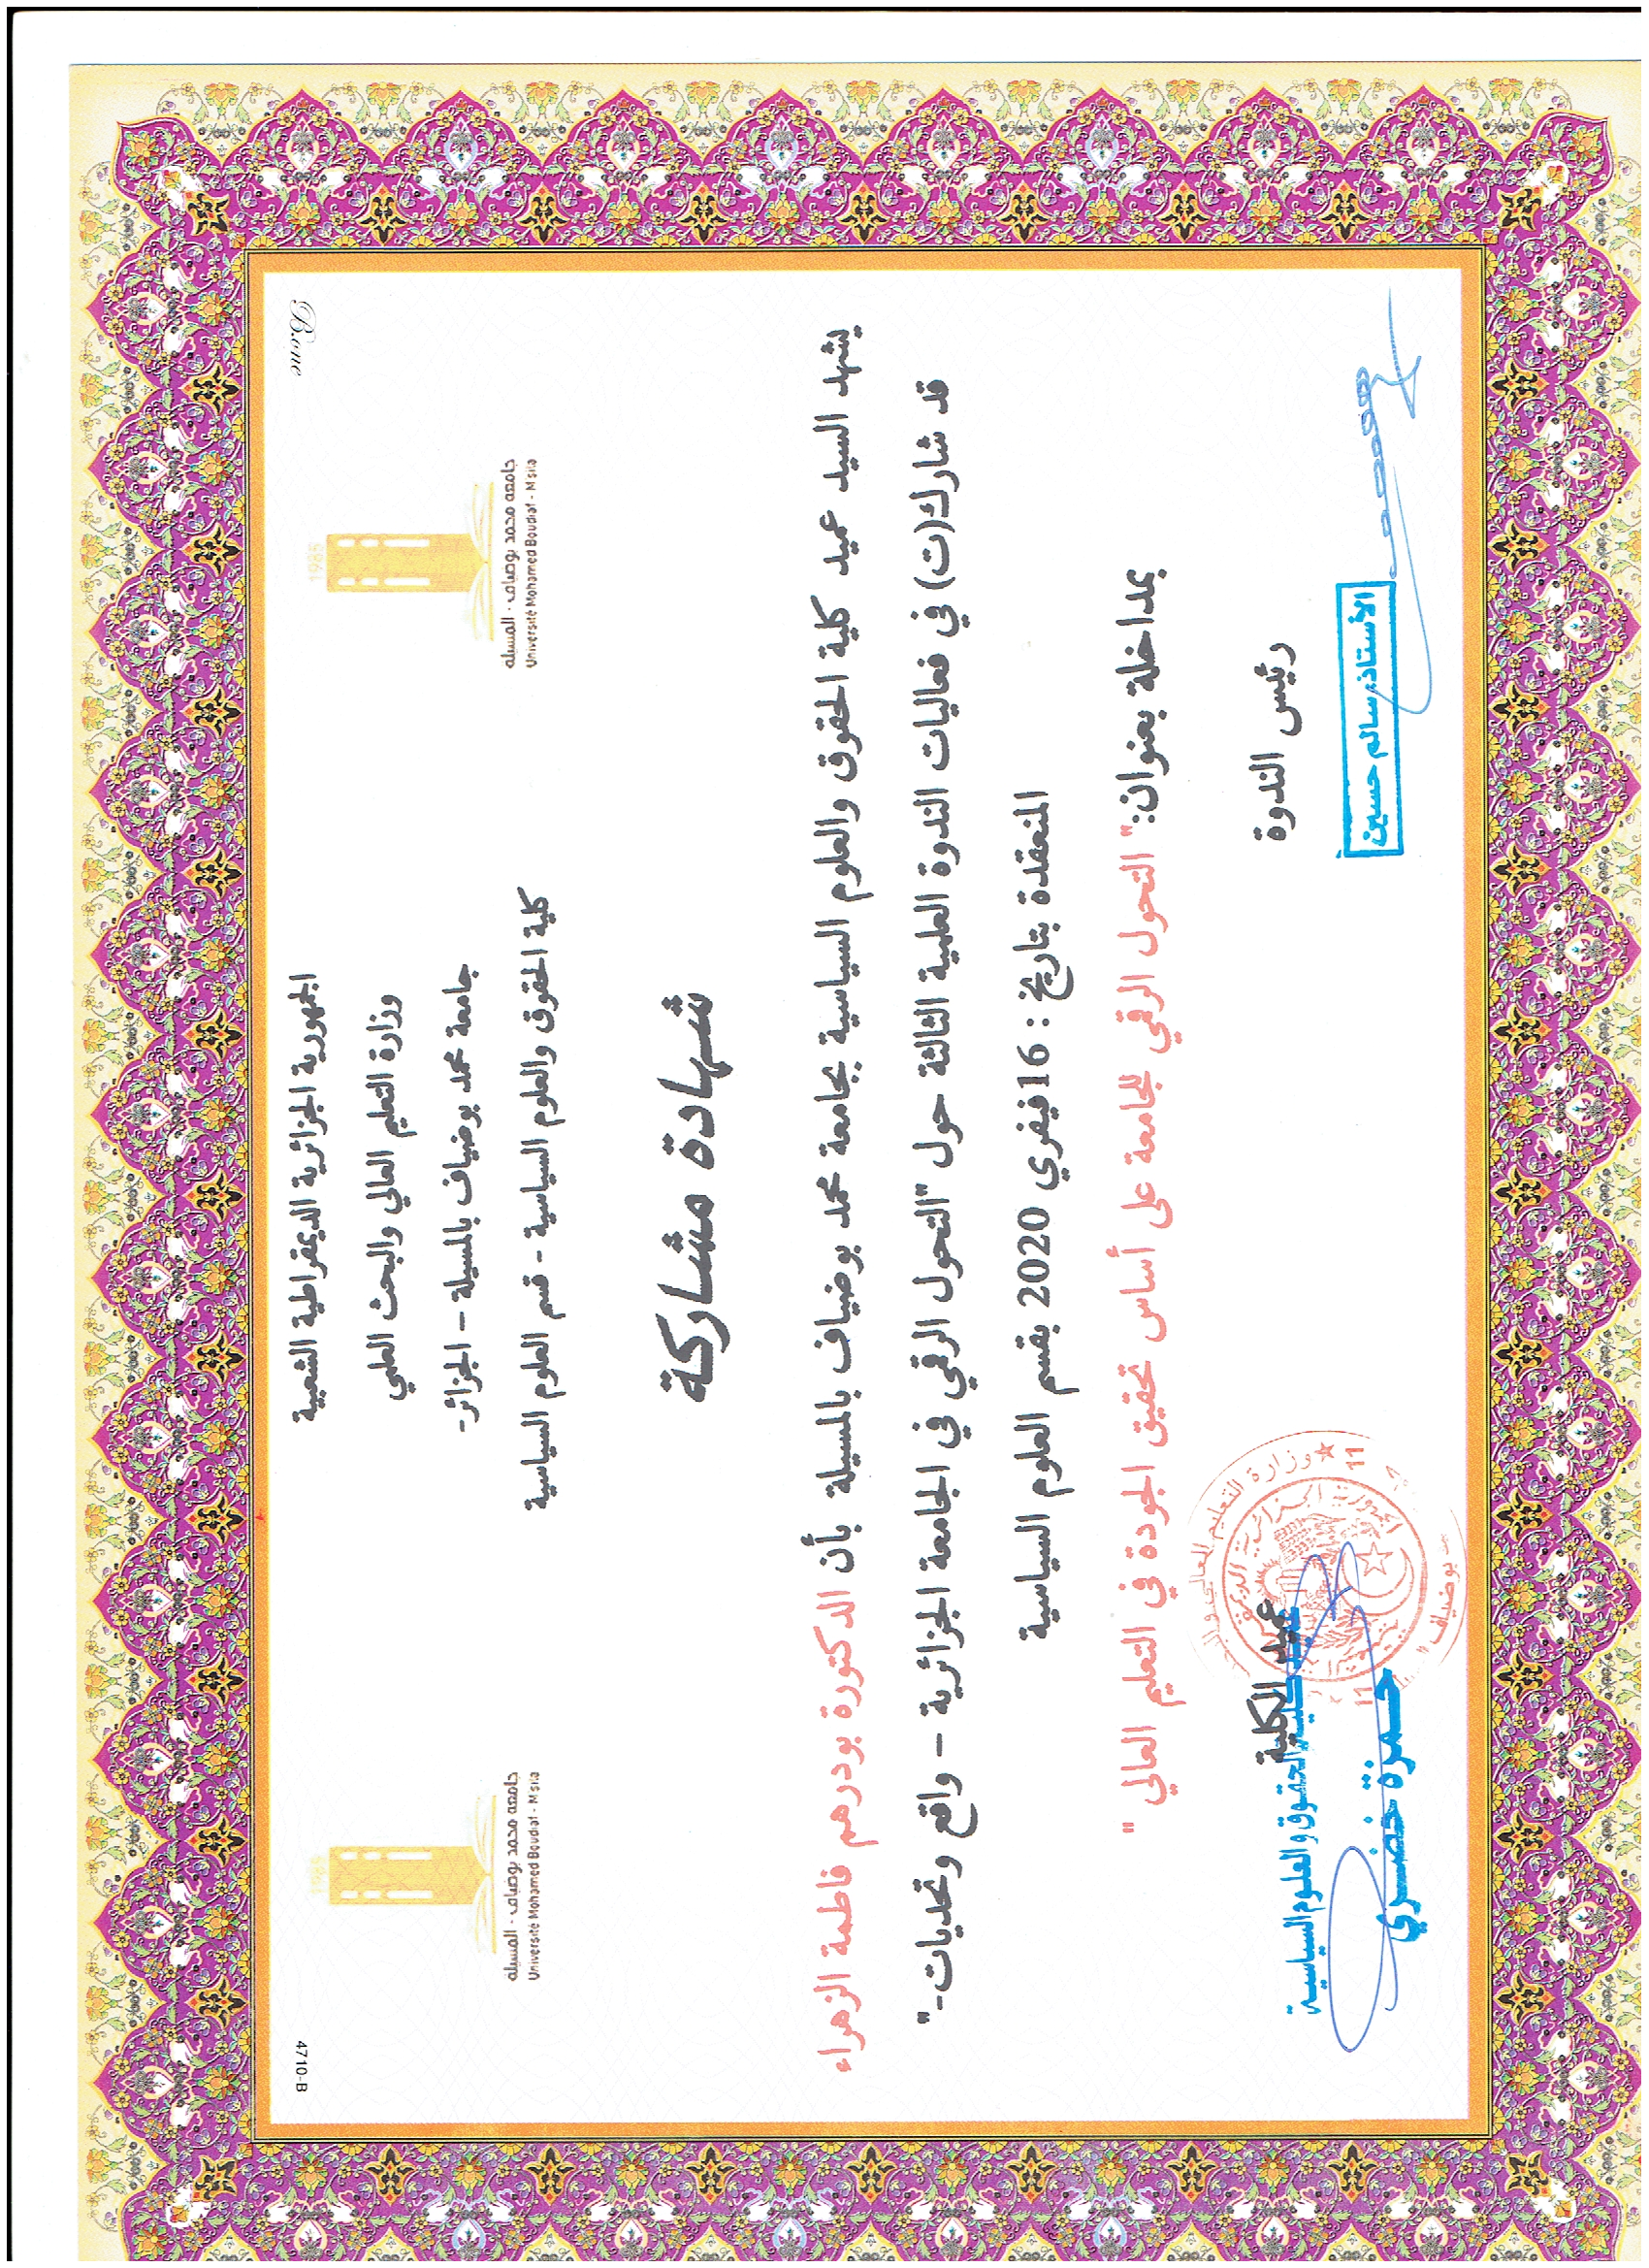 Bome
4710-B
الجمهورية الجزائرية الديمقراطية الشعبية
وزارة التعليم العالي والبحث العلمي
جامعة محمد بوضياف بالمسيلة – الجزائر-
كلية الحقوق والعلوم السياسية - قسم العلوم السياسية
1985
جامعة محمد بوضياف - المسيلة
Université Mohamed Boudiaf - M'sila
1985
جامعة محمد بوضياف - المسيلة
Université Mohamed Boudiaf - M'sila
شهادة مشاركة
يشهد السيد عميد كلية الحقوق والعلوم السياسية بجامعة محمد بوضياف بالمسيلة بأن الدكتورة بودرهم فاطمة الزهراء
قد شارك(ت) في فعاليات الندوة العلمية الثالثة حول "التحول الرقمي في الجامعة الجزائرية – واقع وتحديات-"
المنعقدة بتاريخ : 16فيفري 2020 بقسم العلوم السياسية
بمداخلة بعنوان:" التحول الرقمي للجامعة على أساس تحقيق الجودة في التعليم العالي "
رئيس الندوة
الأستاذ: سالم حسين
عميد الكلية
عميد كلية الحقوق والعلوم السياسية
حمزة خضري
وزارة التعليم العالي
الجمهورية الجزائرية
بوضياف
11